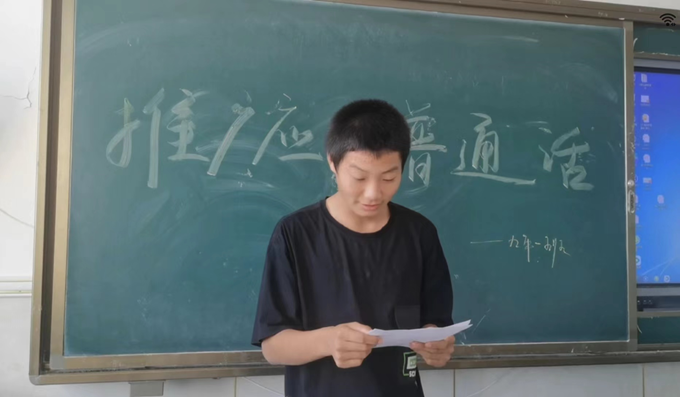 推广应普通话
——九年一班